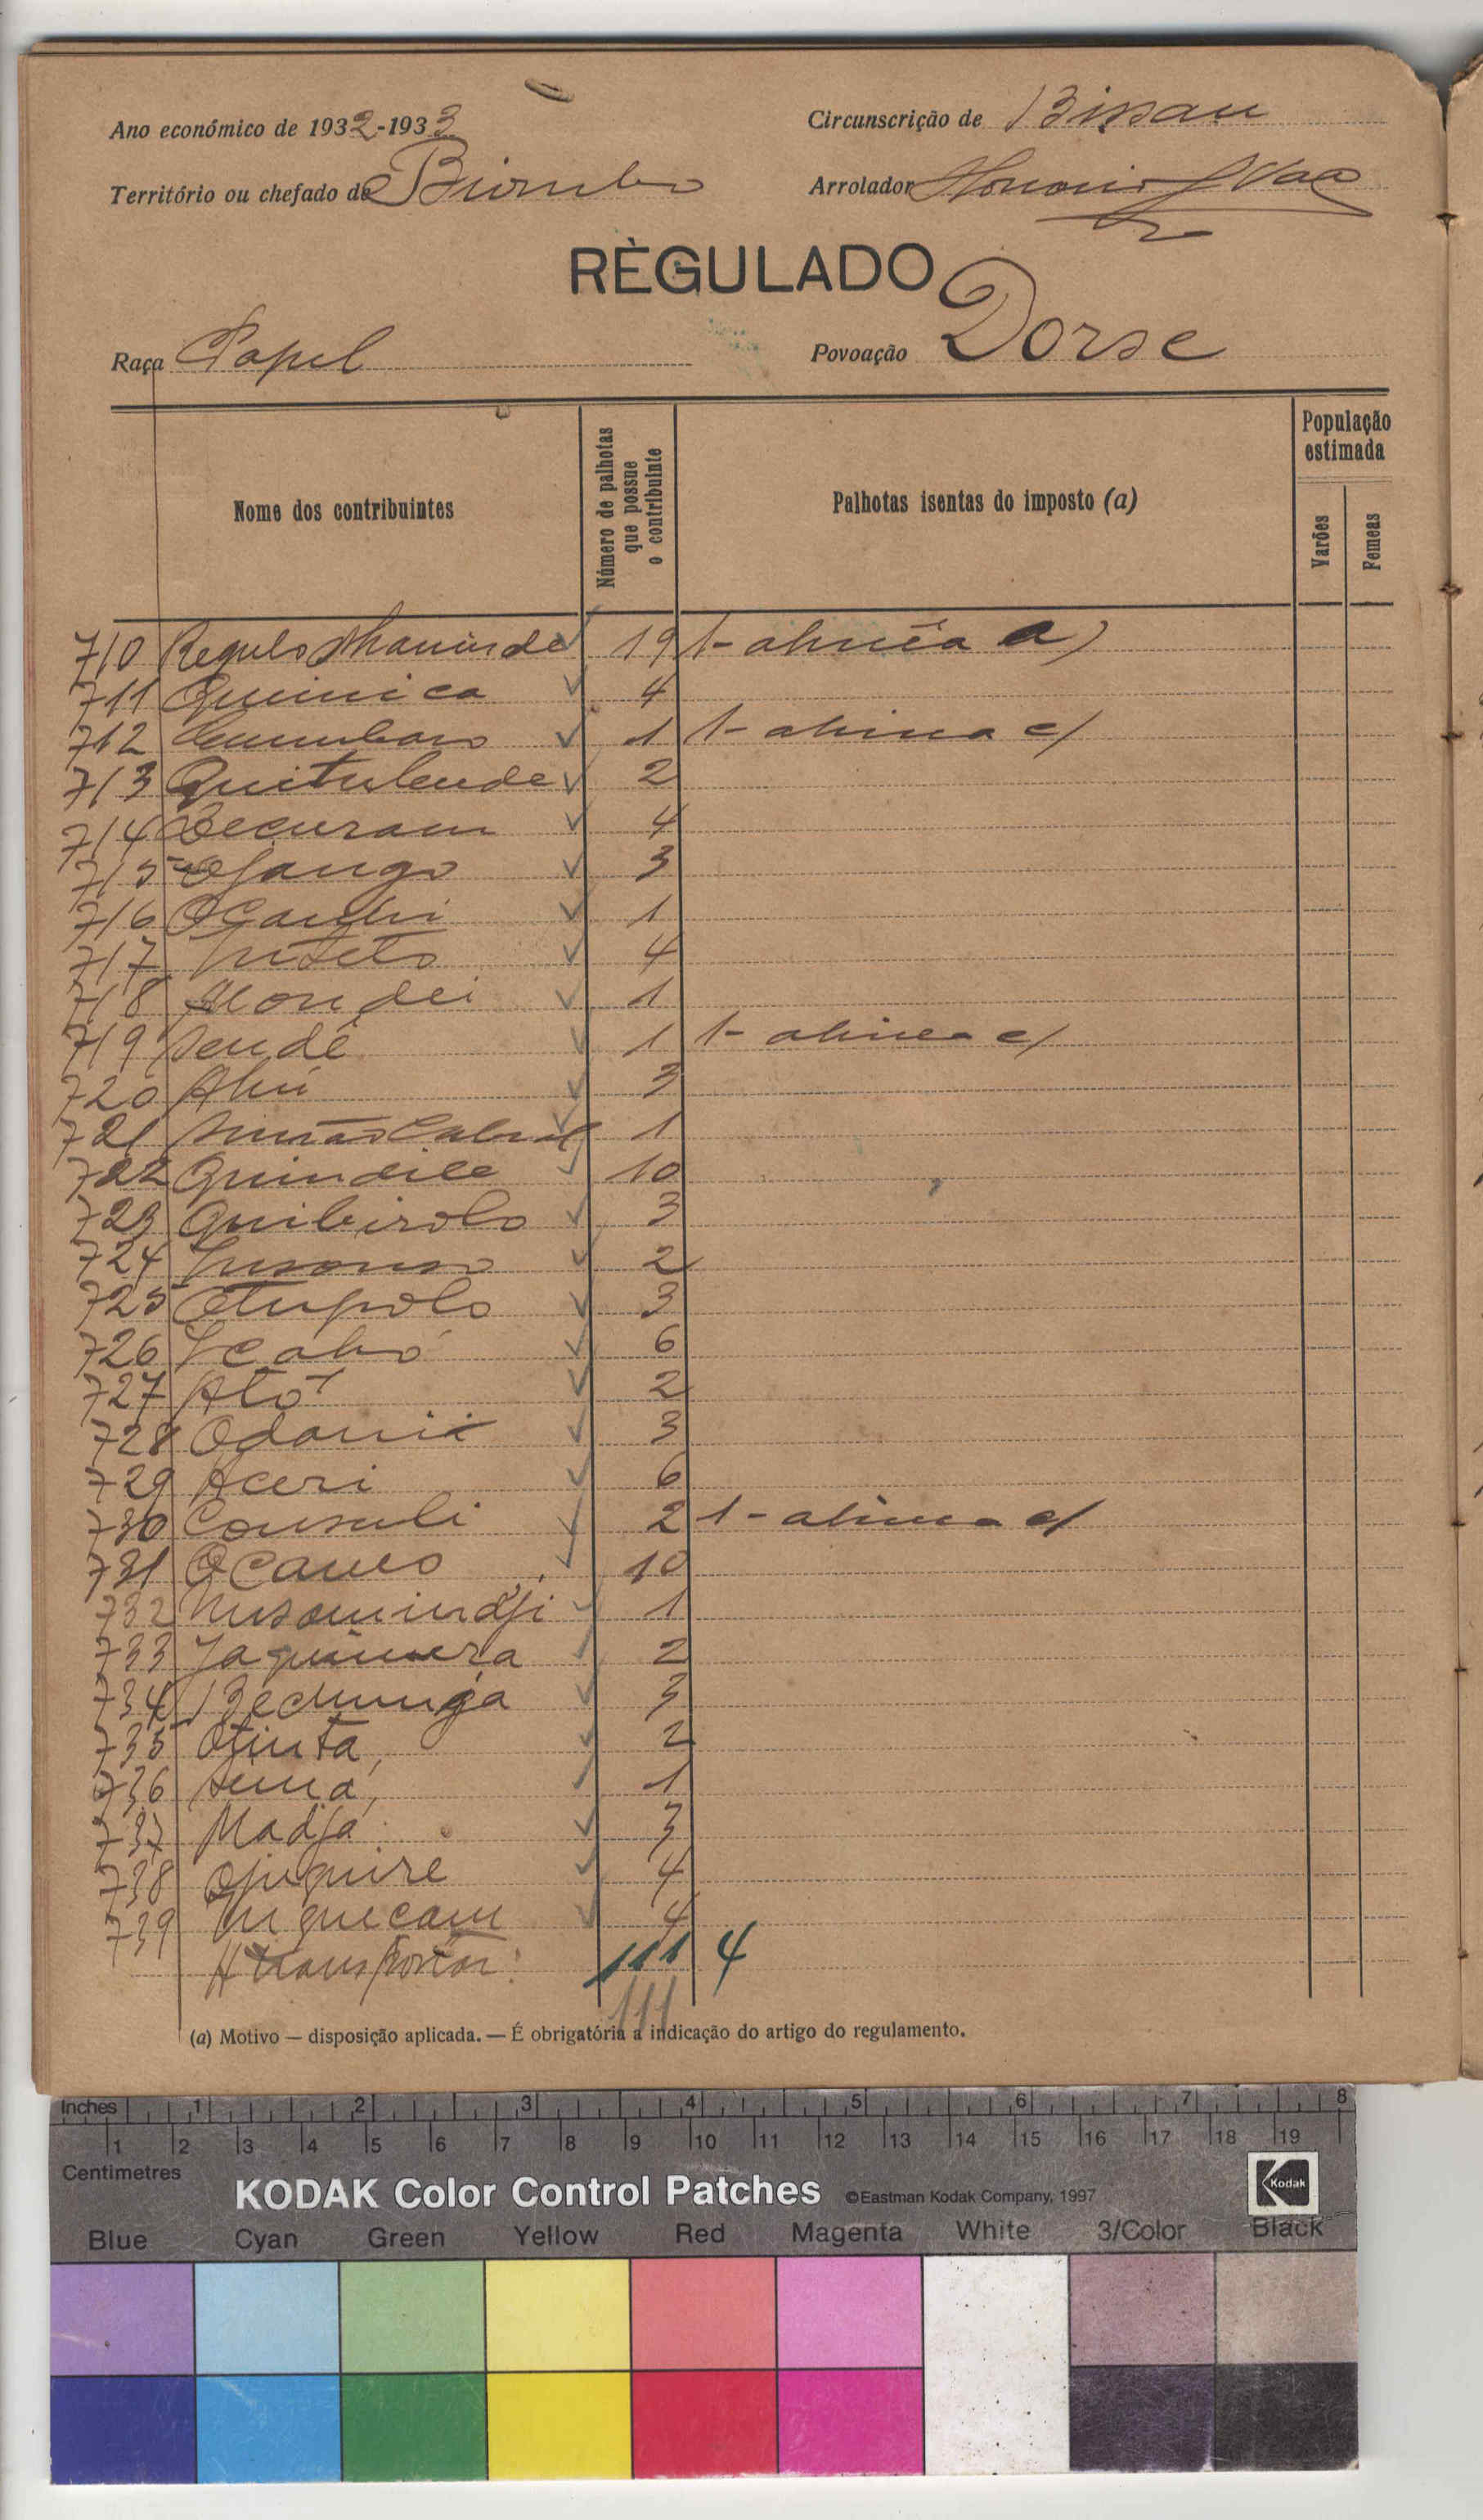 Ano económico de 1932-1933
Circunscrição de Bissau
Território ou chefado de Biombo
Arrolador Honorio
RÈGULADO
Raça Papel
Povoação Dorse
Nome dos contribuintes
Número de palhotas que possue o contribuinte
Palhotas isentas do imposto (a)
População estimada
Varões
Femeas
710 Regulo 19 1- alinêa a)
711 Quinica 4
712 1 1- alinea c/
713 2
714 Becuram 4
715 Ojango 3
716 1
717 4
718 Mondei 1
719 Sendê 1 1- alinea c/
720 3
721 Simão Cabral 1
722 Quindile 10
723 Quibirolo 3
724 2
725 Otupolo 3
726 6
727 Ató 2
728 3
729 Aceri 6
730 Consuli 2 1- alinea c/
731 Ocanes 10
732 1
733 2
734 3
735 Otinta 2
736 1
737 Madja 3
738 Ojuquire 4
739 4
A transportar: 111 4
111
(a) Motivo — disposição aplicada. — É obrigatória a indicação do artigo do regulamento.
Inches 1 2 3 4 5 6 7 8
1 2 3 4 5 6 7 8 9 10 11 12 13 14 15 16 17 18 19
Centimetres
KODAK Color Control Patches ©Eastman Kodak Company, 1997 Kodak
Blue Cyan Green Yellow Red Magenta White 3/Color Black